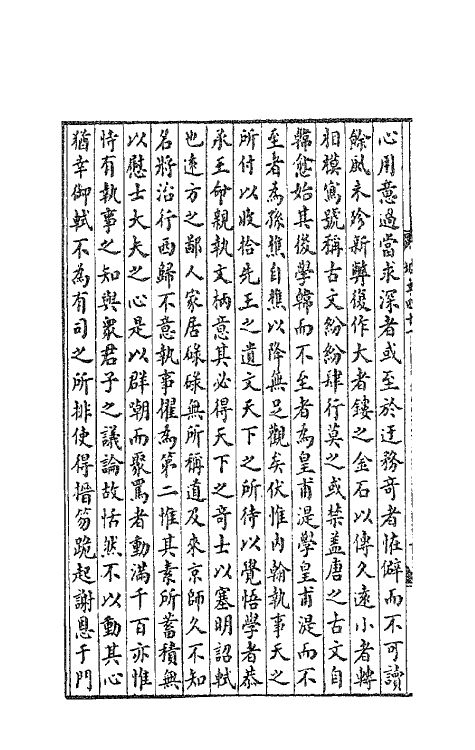 心用意過當求深者或至於迂務奇者怪僻而不可讀
餘風未殄新弊復作大者鏤之金石以傳久遠小者轉
相模寫號稱古文紛紛肆行莫之或禁蓋唐之古文自
韓愈始其後學韓而不至者為皇甫湜學皇甫湜而不
至者為孫樵自樵以降無足觀矣伏惟內翰執事天之
所付以收拾先王之遺文天下之所待以覺悟學者恭
承王命親執文柄意其必得天下之奇士以塞明詔軾
也遠方之鄙人家居碌碌無所稱道及來京師久不知
名將治行西歸不意執事擢為第二惟其素所蓄積無
以慰士大夫之心是以群潮而聚罵者動滿千百亦惟
恃有執事之知與衆君子之議論故恬然不以動其心
猶幸御試不為有司之所排使得搢笏跪起謝恩于門